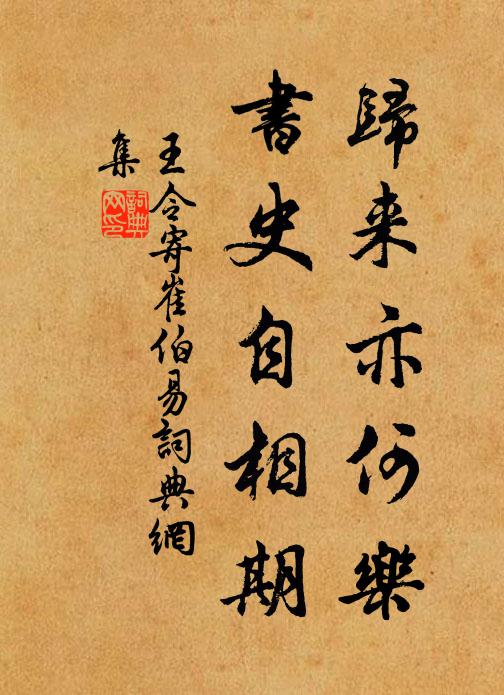 歸来亦何樂
書史自相期
王令寄崔伯易詞典網
集
詞典网印